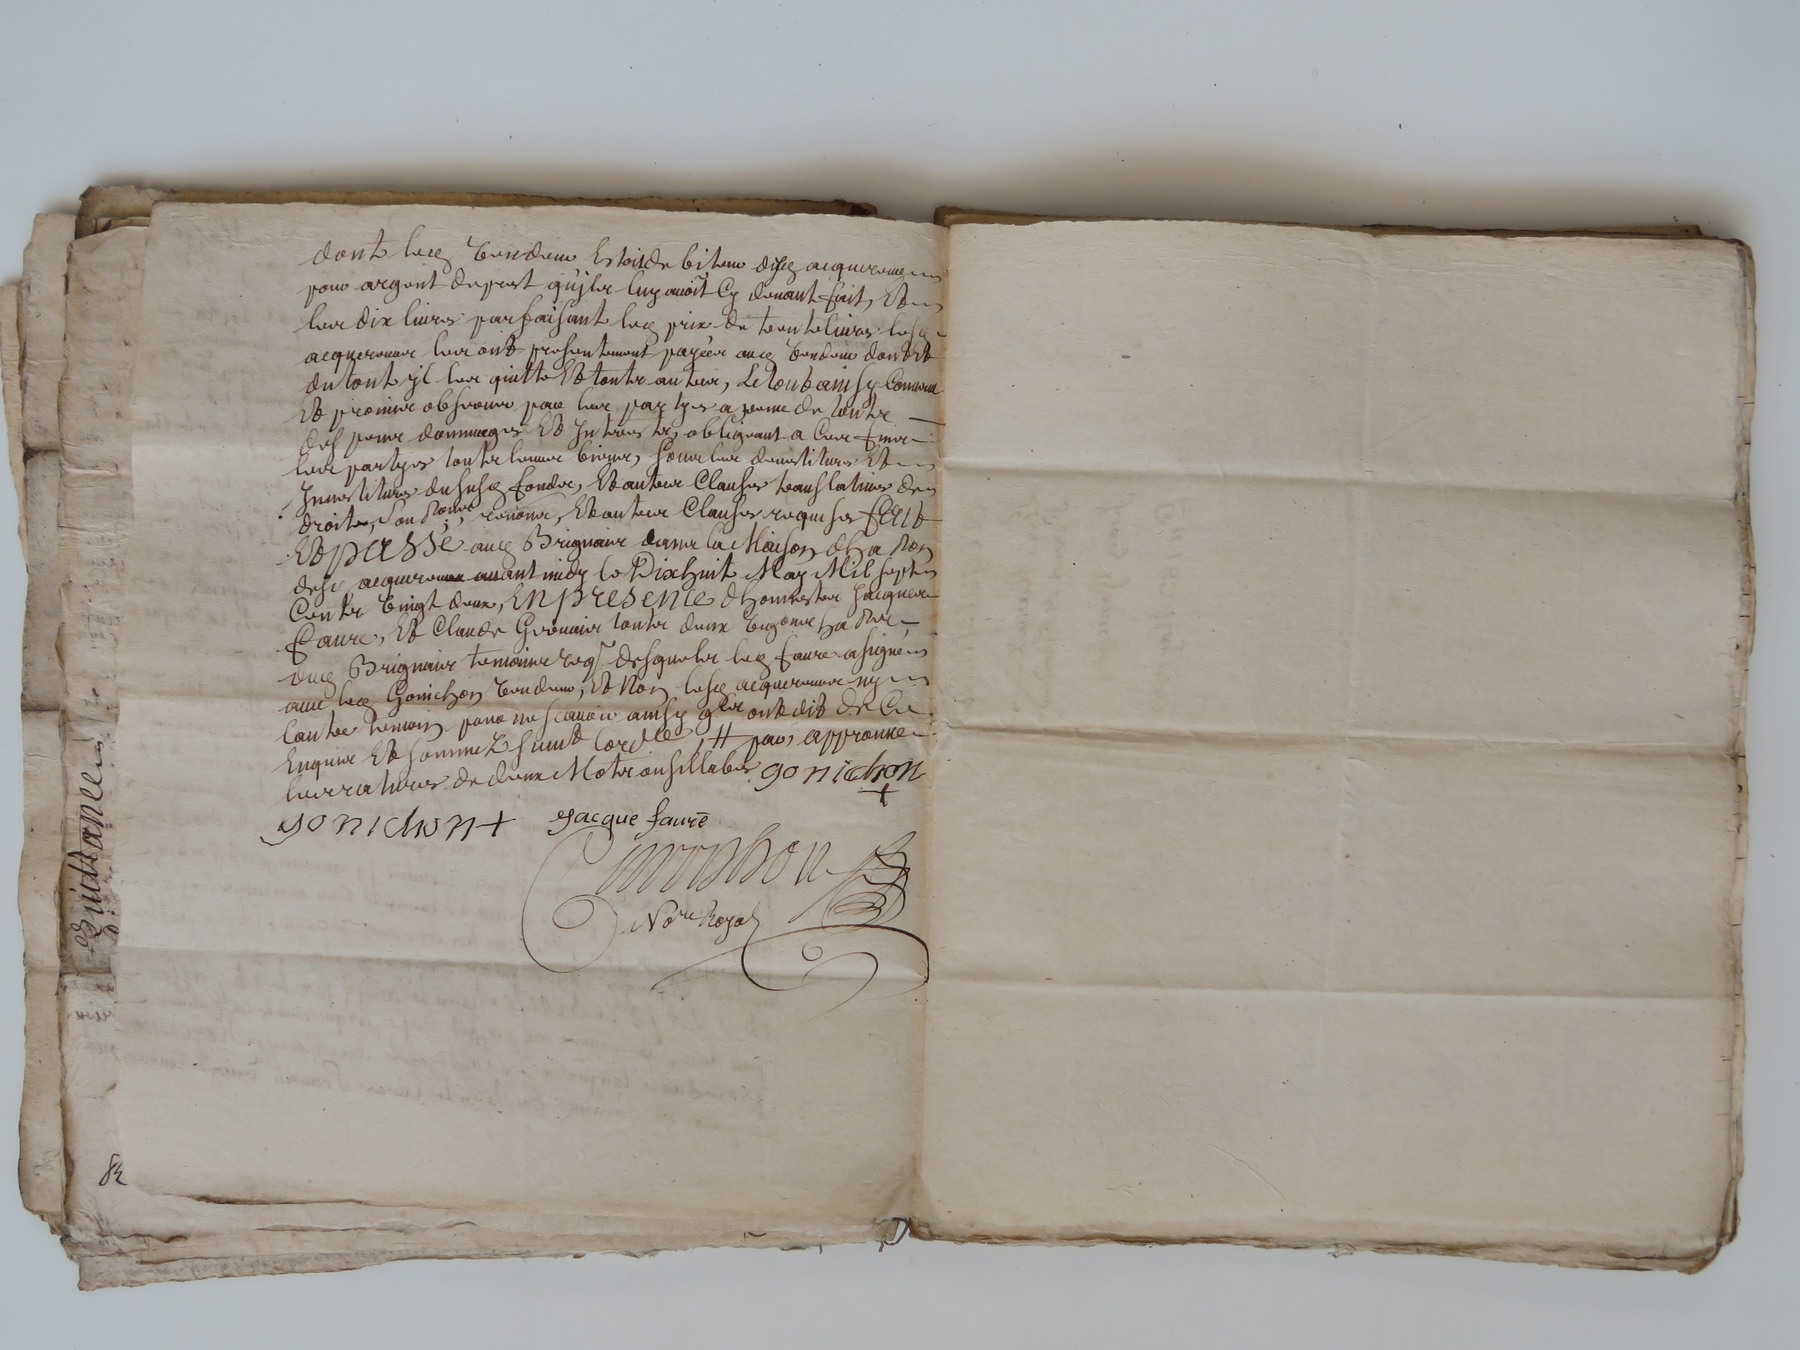 dont led vendeur estoit debiteur desd acquereurs
pour argent de prest qu'jls luy avoit cy devant fait, Et
les dix livres parfaisant led prix de trente livres lesd
acquereurs les ont presentement payées aud vendeur dont et
du tout jl les quitte Et toute autres, Le tout ainsy convenu
Et promis observer par les partyes a peine de toute
des pens dommages Et Interests, obligeant a ces fins
les partyes toute leurs biens, sous les devestitures Et
Investitures dususd fonds, Et autres Clauses translatives de
droits, renonce, Et autres Clauses requises FAIT
Et passé aud Brignais dans la Maison
desd acquereurs avant midy le Dixhuit May Mil sept
Cents vingt deux, EN presence d'honnestes Jacques
Faure, Et Claude Gervais toute deux vignerons
dud Brignais temoins req desquels led Faure a signé
avec led Gonichon vendeur, Et Non lesd acquereurs ny
l'autre temoin pour ne scavoir ainsy qls ont dit de Ce
Enquis Et sommez suivt l'ordce, // pas, approuvé
les ratures de deux Mots ou sillabes gonichon
+
gonichon + Jacque faure
Nore Royal
Quittance
82